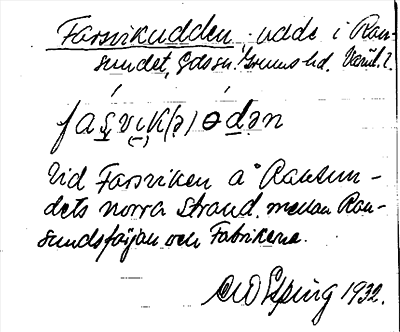 Farsvikudden, udde i Ran-
sundet, Eds sn. Grums hd. Värml.
fas̱vɪk(ə)ɵḏən
Vid Farsviken å Ransun-
dets norra strand. mellan Ran-
sundsfärjan och Fabrikerna.
1932.